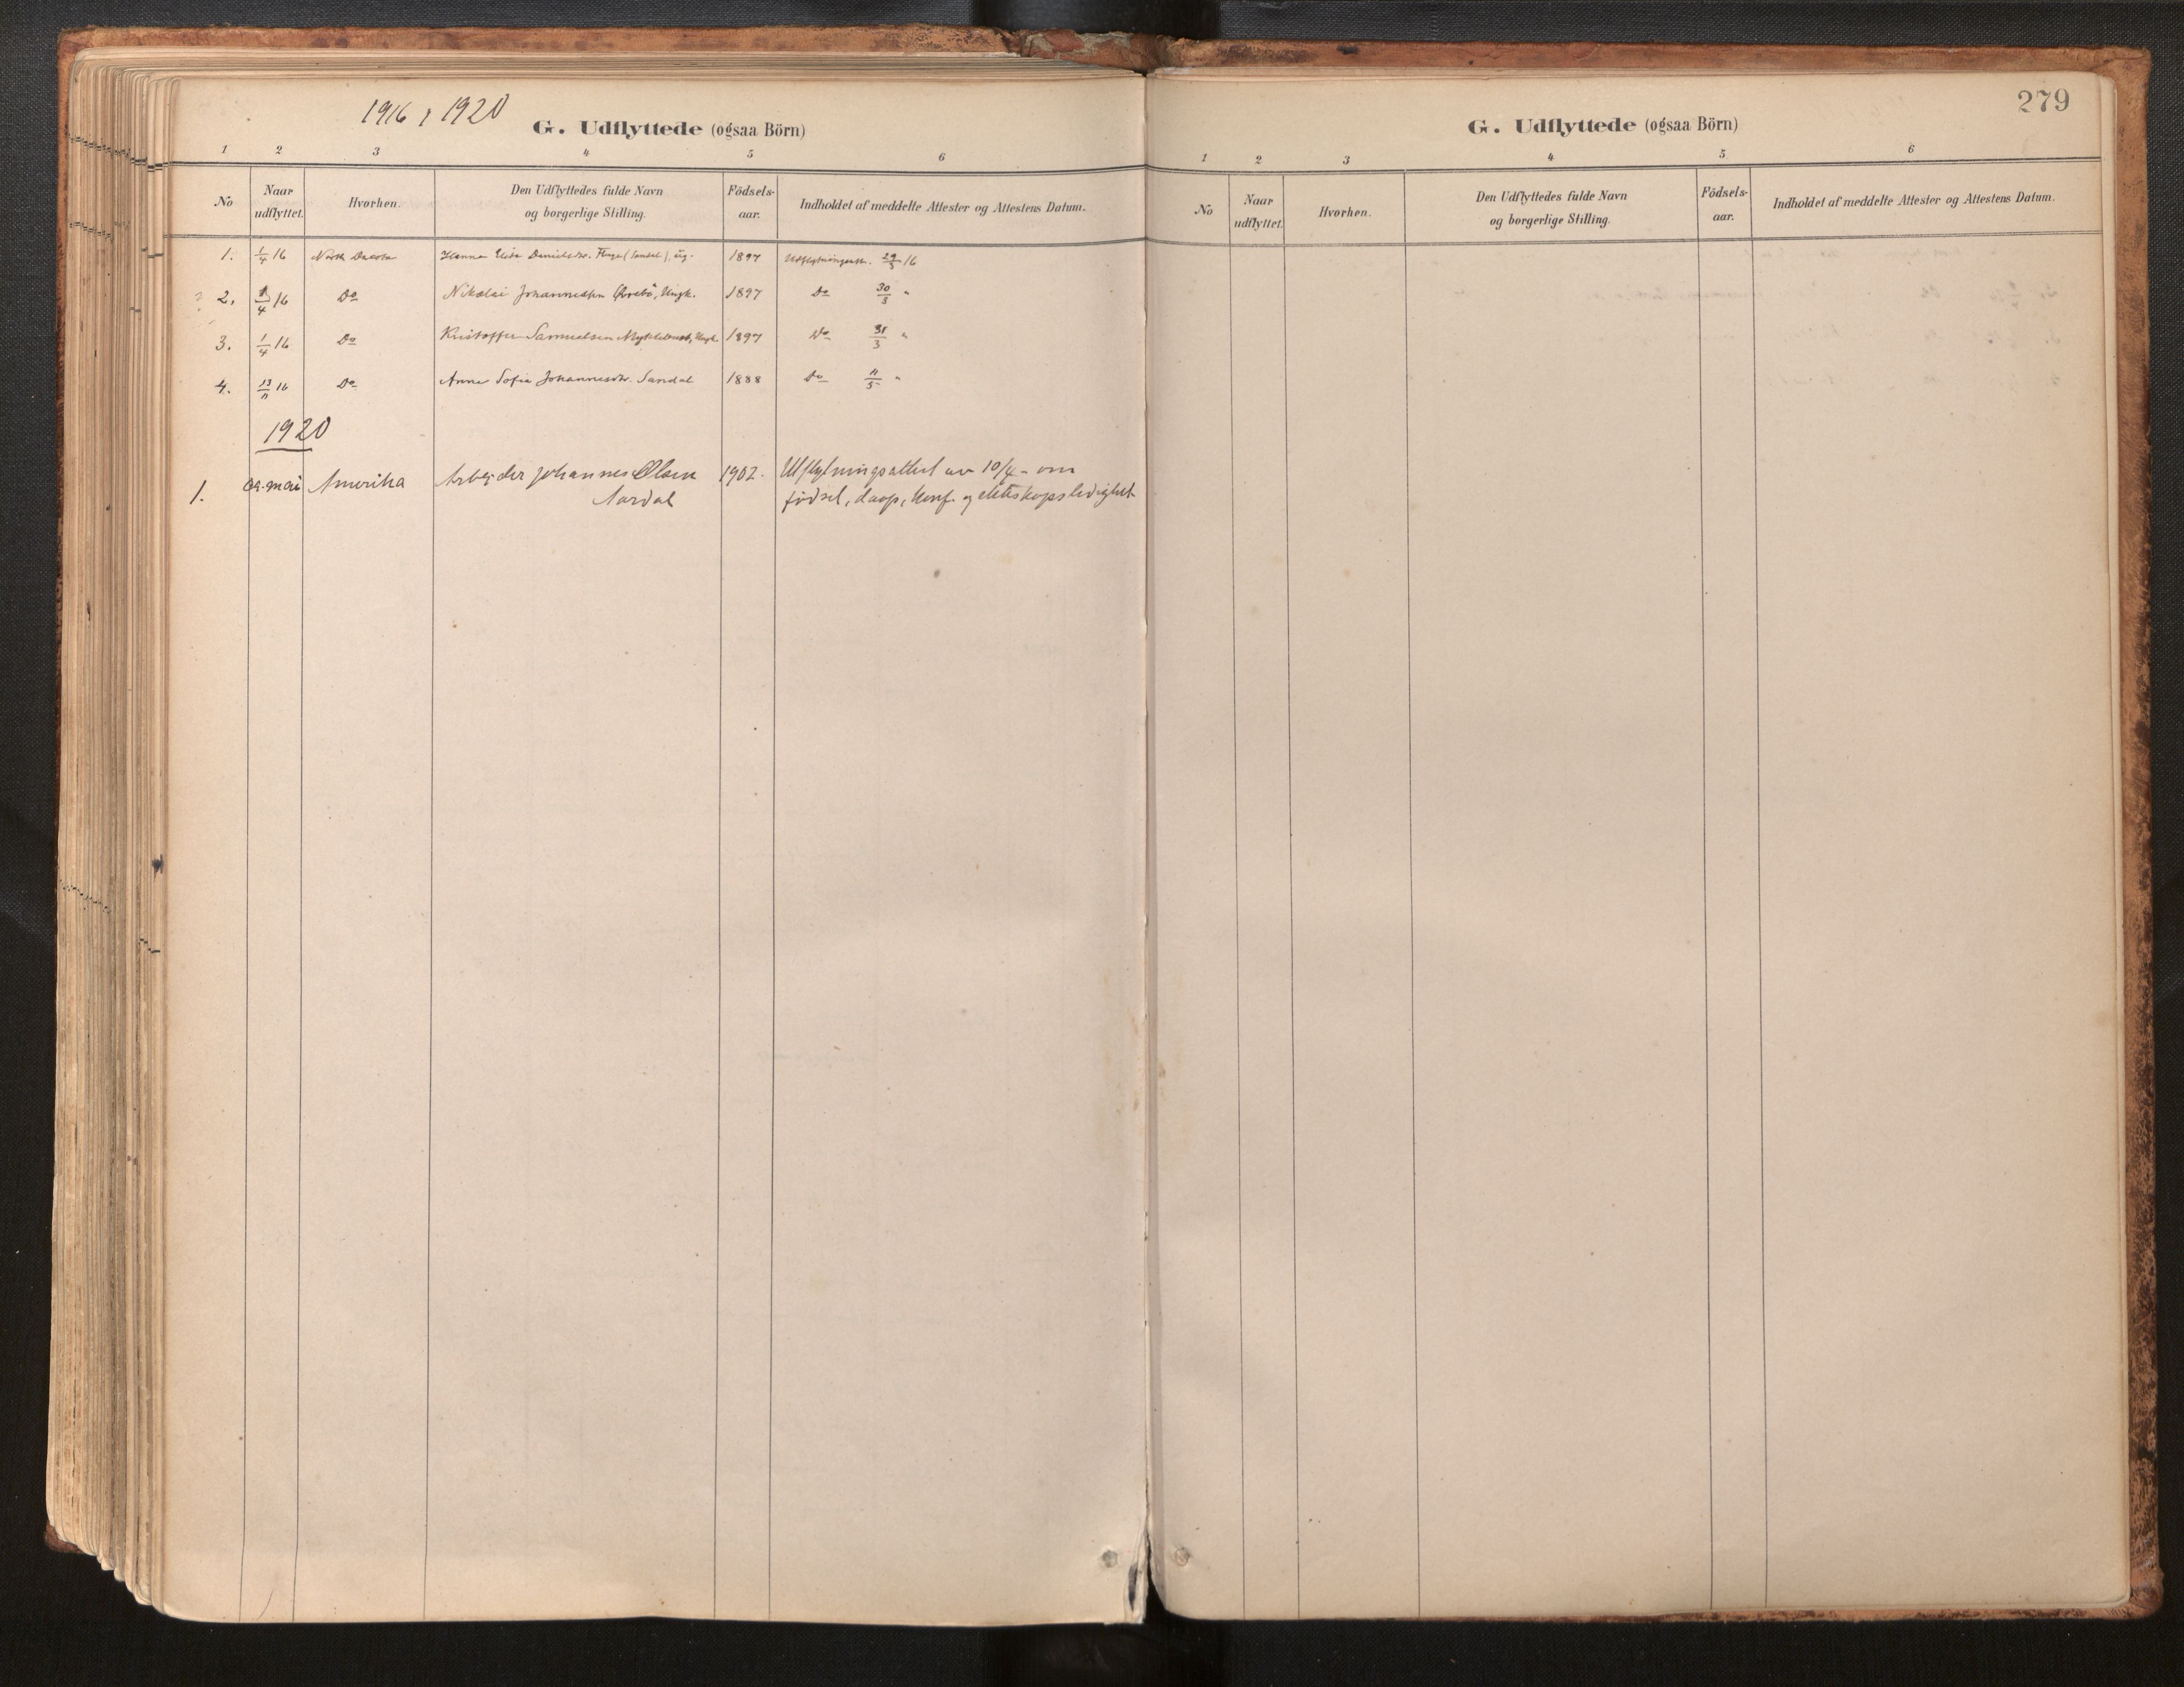 1916, 1920
G. Udflyttede (ogsaa Börn)
1 2 3 4 5 6
No Naar udflyttet. Hvorhen. Den Udflyttedes fulde Navn og borgerlige Stilling. Födsels-aar. Indholdet af meddelte Attester og Attestens Datum.
1. 1/4 16 North Dacota Hanna Elida Danielsdr. Fluge (Sandal), ug. 1897 Udflytningsatt. 29/3 16
2. 1/4 16 Do Nikolai Johannessen Øvrebö, Ungk. 1897 Do 30/3 "
3. 1/4 16 Do Kristoffer Samuelsen Myklebust, Ungk. 1897 Do 31/3 "
4. 13/11 16 Do Anna Sofia Johannesdr. Sandal 1888 Do 11/5 "
1920
1. mai Amerika Arbeider Johannes Olsen 1902. Utflytningsattest av 10/4 - om
Aardal fødsel, daap, konf. og ekteskapsledighet
279
G. Udflyttede (ogsaa Börn)
1 2 3 4 5 6
No Naar udflyttet. Hvorhen. Den Udflyttedes fulde Navn og borgerlige Stilling. Födsels-aar. Indholdet af meddelte Attester og Attestens Datum.